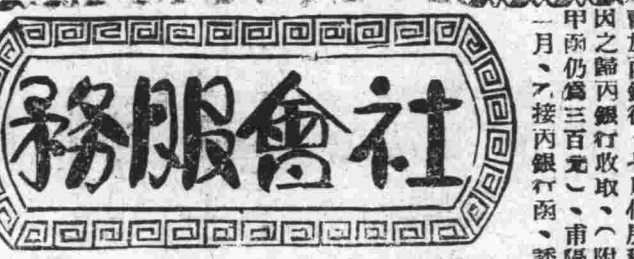 社會服務
因之歸丙銀行收取、（附
甲函仍爲三百元）、甫隔
一月、乙接丙銀行函、